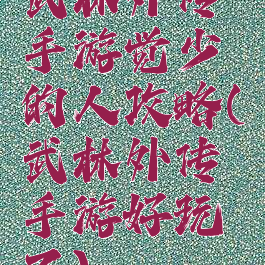 武林外传
手游觉少
的人攻略(
武林外传
手游好玩